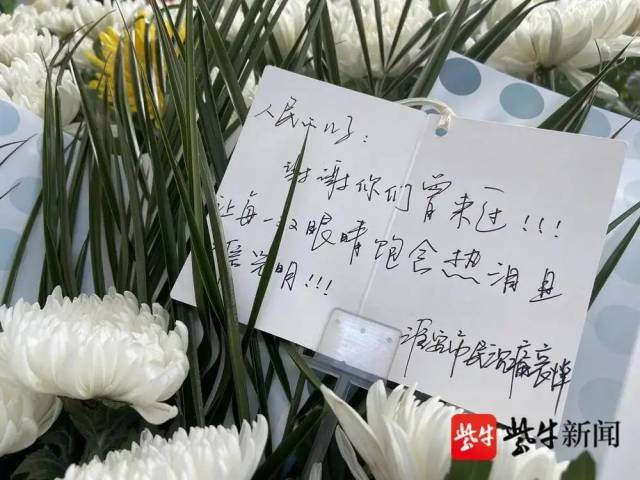 人民
谢谢你们曾来过!!!
让每一双眼睛饱含热泪且
光明!!!
淮安市民沉痛哀悼
紫牛 紫牛新闻